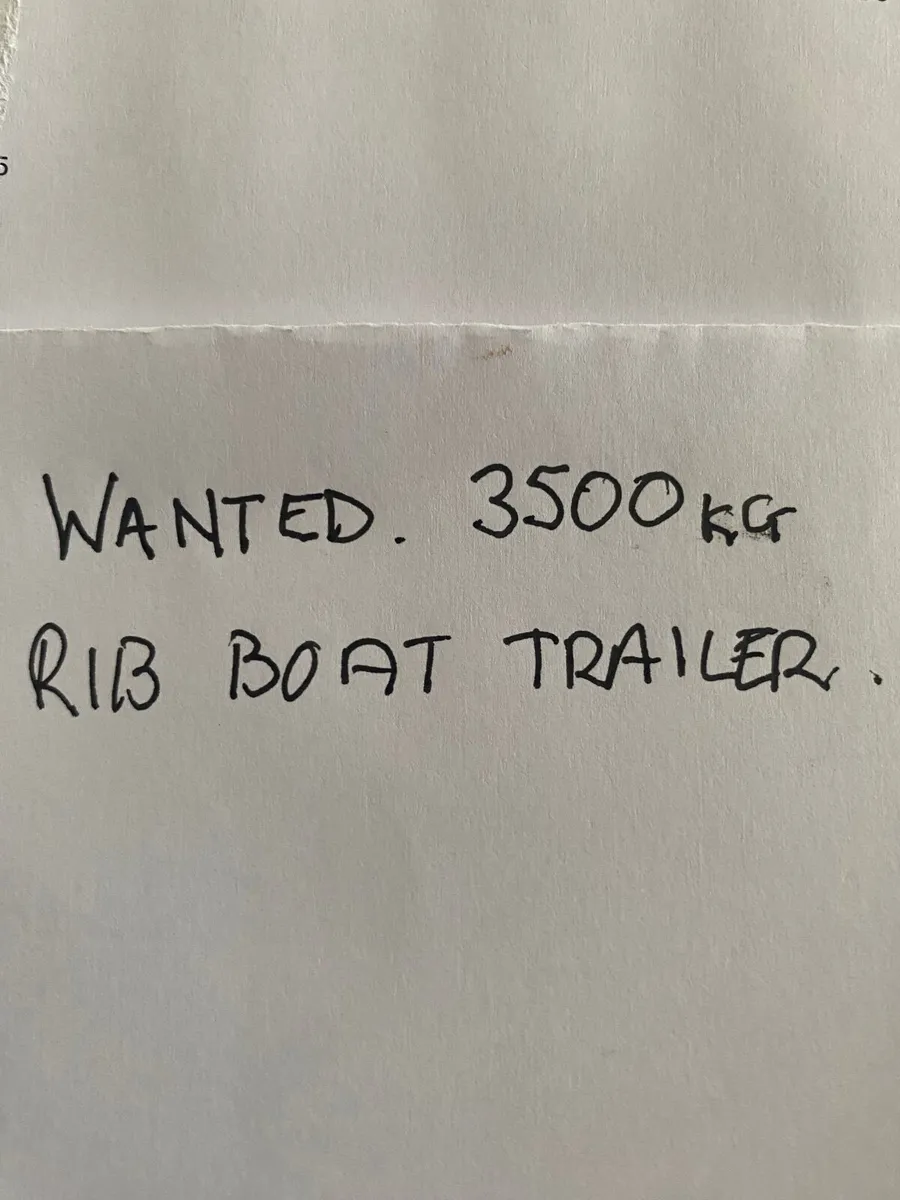 5
WANTED. 3500KG
RIB BOAT TRAILER.